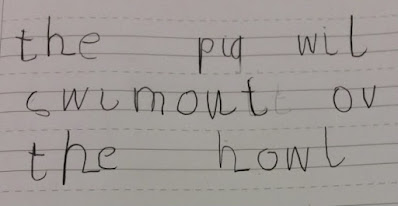 the pig wil
swimout ov
the howl